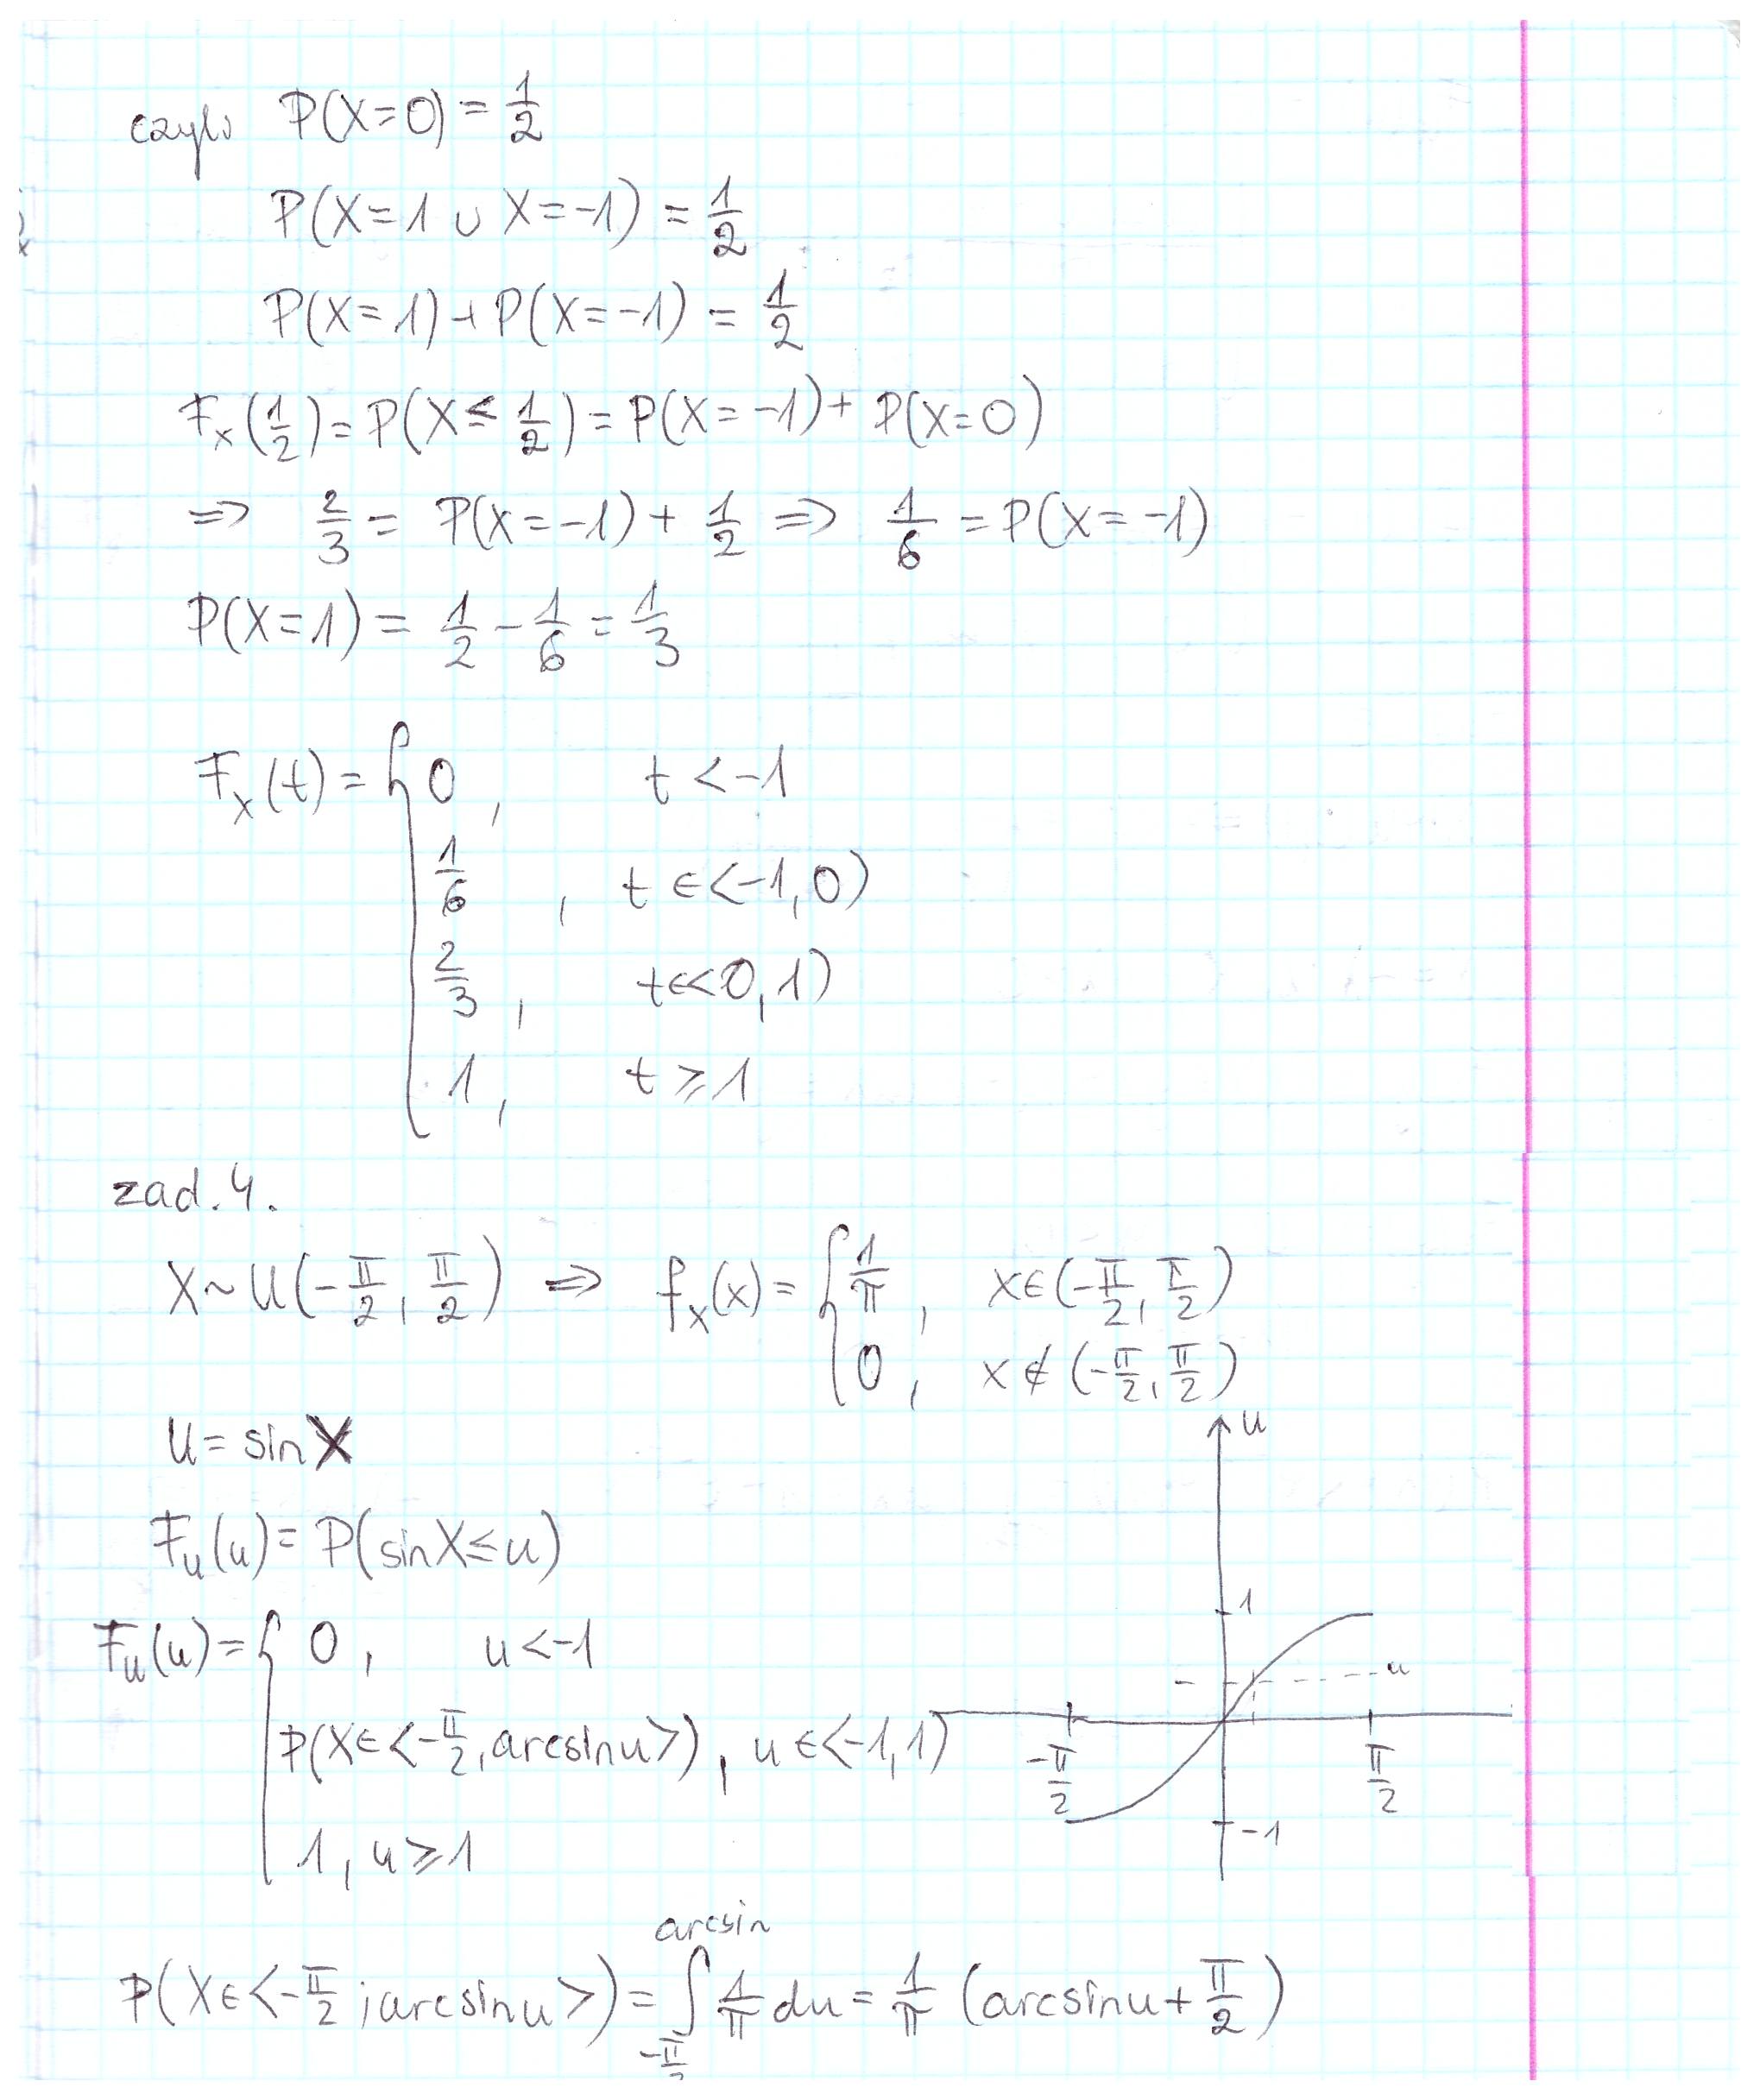 czyli P(X=0) = 1/2
P(X=1 ∪ X=-1) = 1/2
P(X=1)+P(X=-1) = 1/2
F_x(1/2) = P(X≤1/2) = P(X=-1) + P(X=0)
⇒ 2/3 = P(X=-1) + 1/2 ⇒ 1/6 = P(X=-1)
P(X=1) = 1/2 - 1/6 = 1/3
F_x(t) = { 0, t < -1
1/6, t ∈ <-1,0)
2/3, t ∈ <0,1)
1, t ≥ 1
zad. 4.
X~U(-π/2, π/2) ⇒ f_x(x) = { 1/π, x∈(-π/2, π/2)
0, x∉(-π/2, π/2)
U = sin X
F_u(u) = P(sinX≤u)
F_u(u) = { 0, u < -1
P(X∈<-π/2, arcsinu>), u∈<-1,1)
1, u ≥ 1
u
1
u
-π/2 π/2
-1
P(X∈<-π/2; arcsinu>) = ∫_{-π/2}^{arcsin} 1/π du = 1/π (arcsinu + π/2)